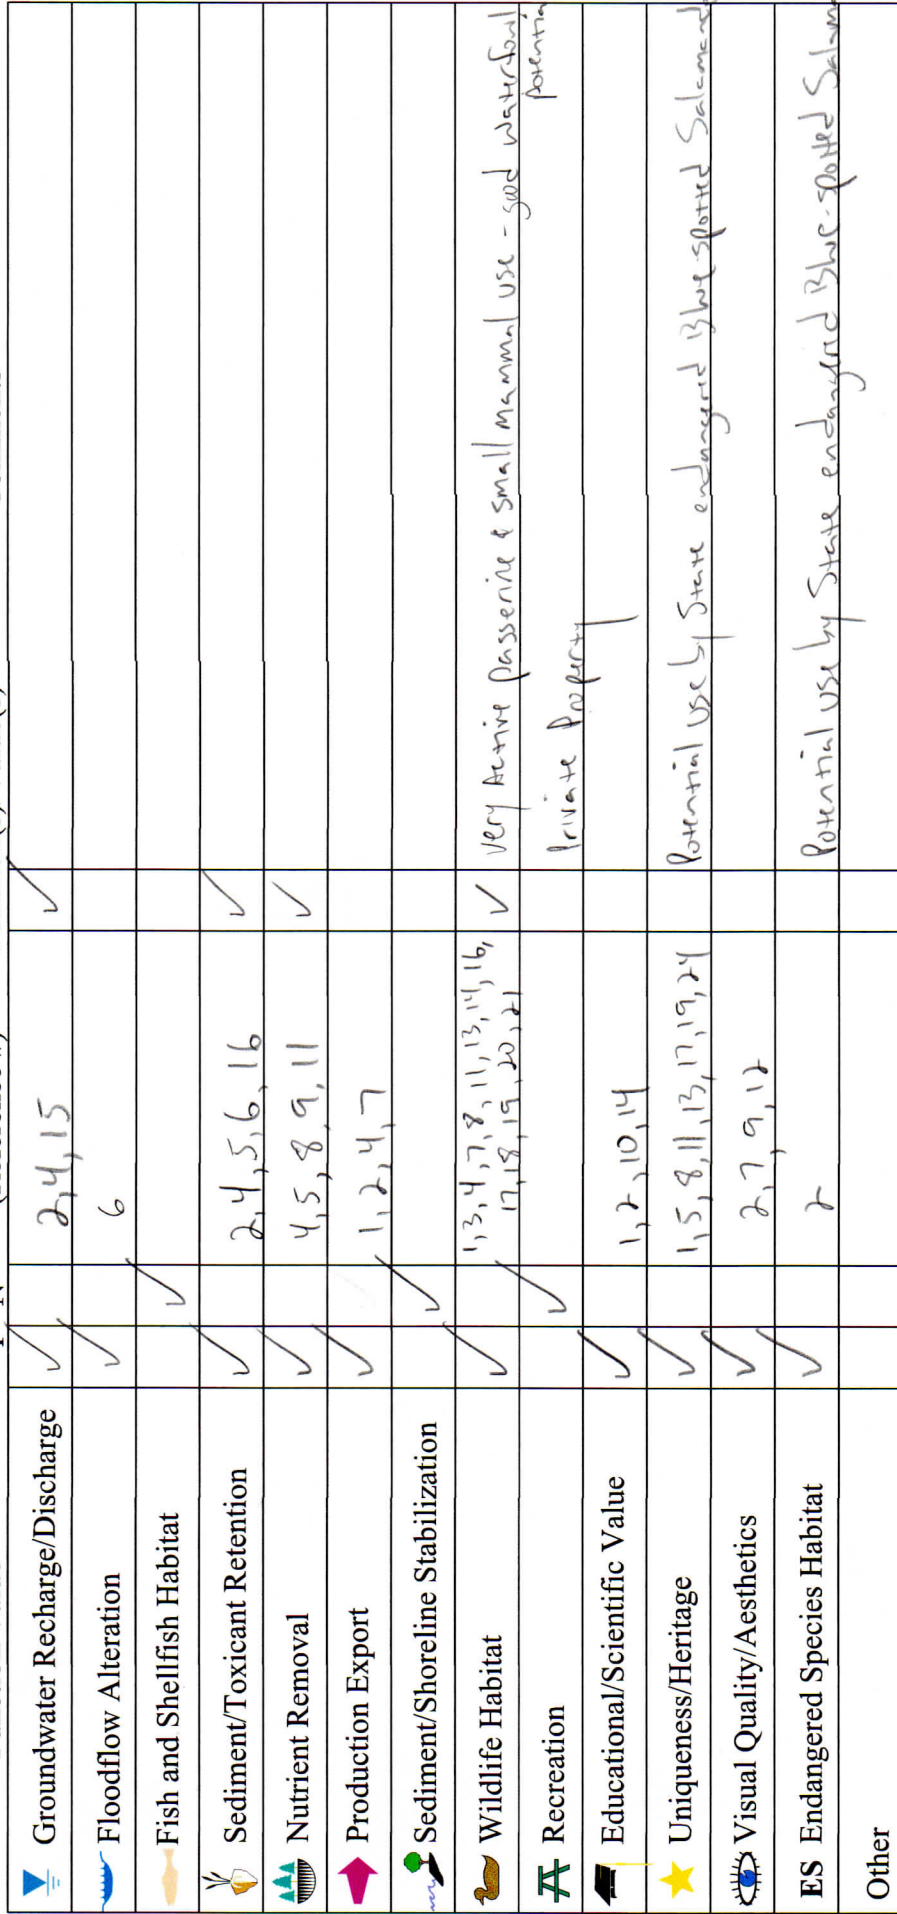 Groundwater Recharge/Discharge ✓ 2,4,15 ✓
Floodflow Alteration ✓ 6
Fish and Shellfish Habitat ✓
Sediment/Toxicant Retention ✓ 2,4,5,6,16 ✓
Nutrient Removal ✓ 4,5,8,9,11 ✓
Production Export ✓ 1,2,4,7
Sediment/Shoreline Stabilization ✓
Wildlife Habitat ✓ 1,3,4,7,8,11,13,14,16, ✓ Very Active passerine & small mammal use - good waterfowl
17,18,19,20,21 potentia
Recreation ✓ Private Property
Educational/Scientific Value ✓ 1,2,10,14
Uniqueness/Heritage ✓ 1,5,8,11,13,17,19,24 Potential use by State endangered Blue-spotted Salamand
Visual Quality/Aesthetics ✓ 2,7,9,12
ES Endangered Species Habitat ✓ 2 Potential use by State endangered Blue-spotted Salam
Other